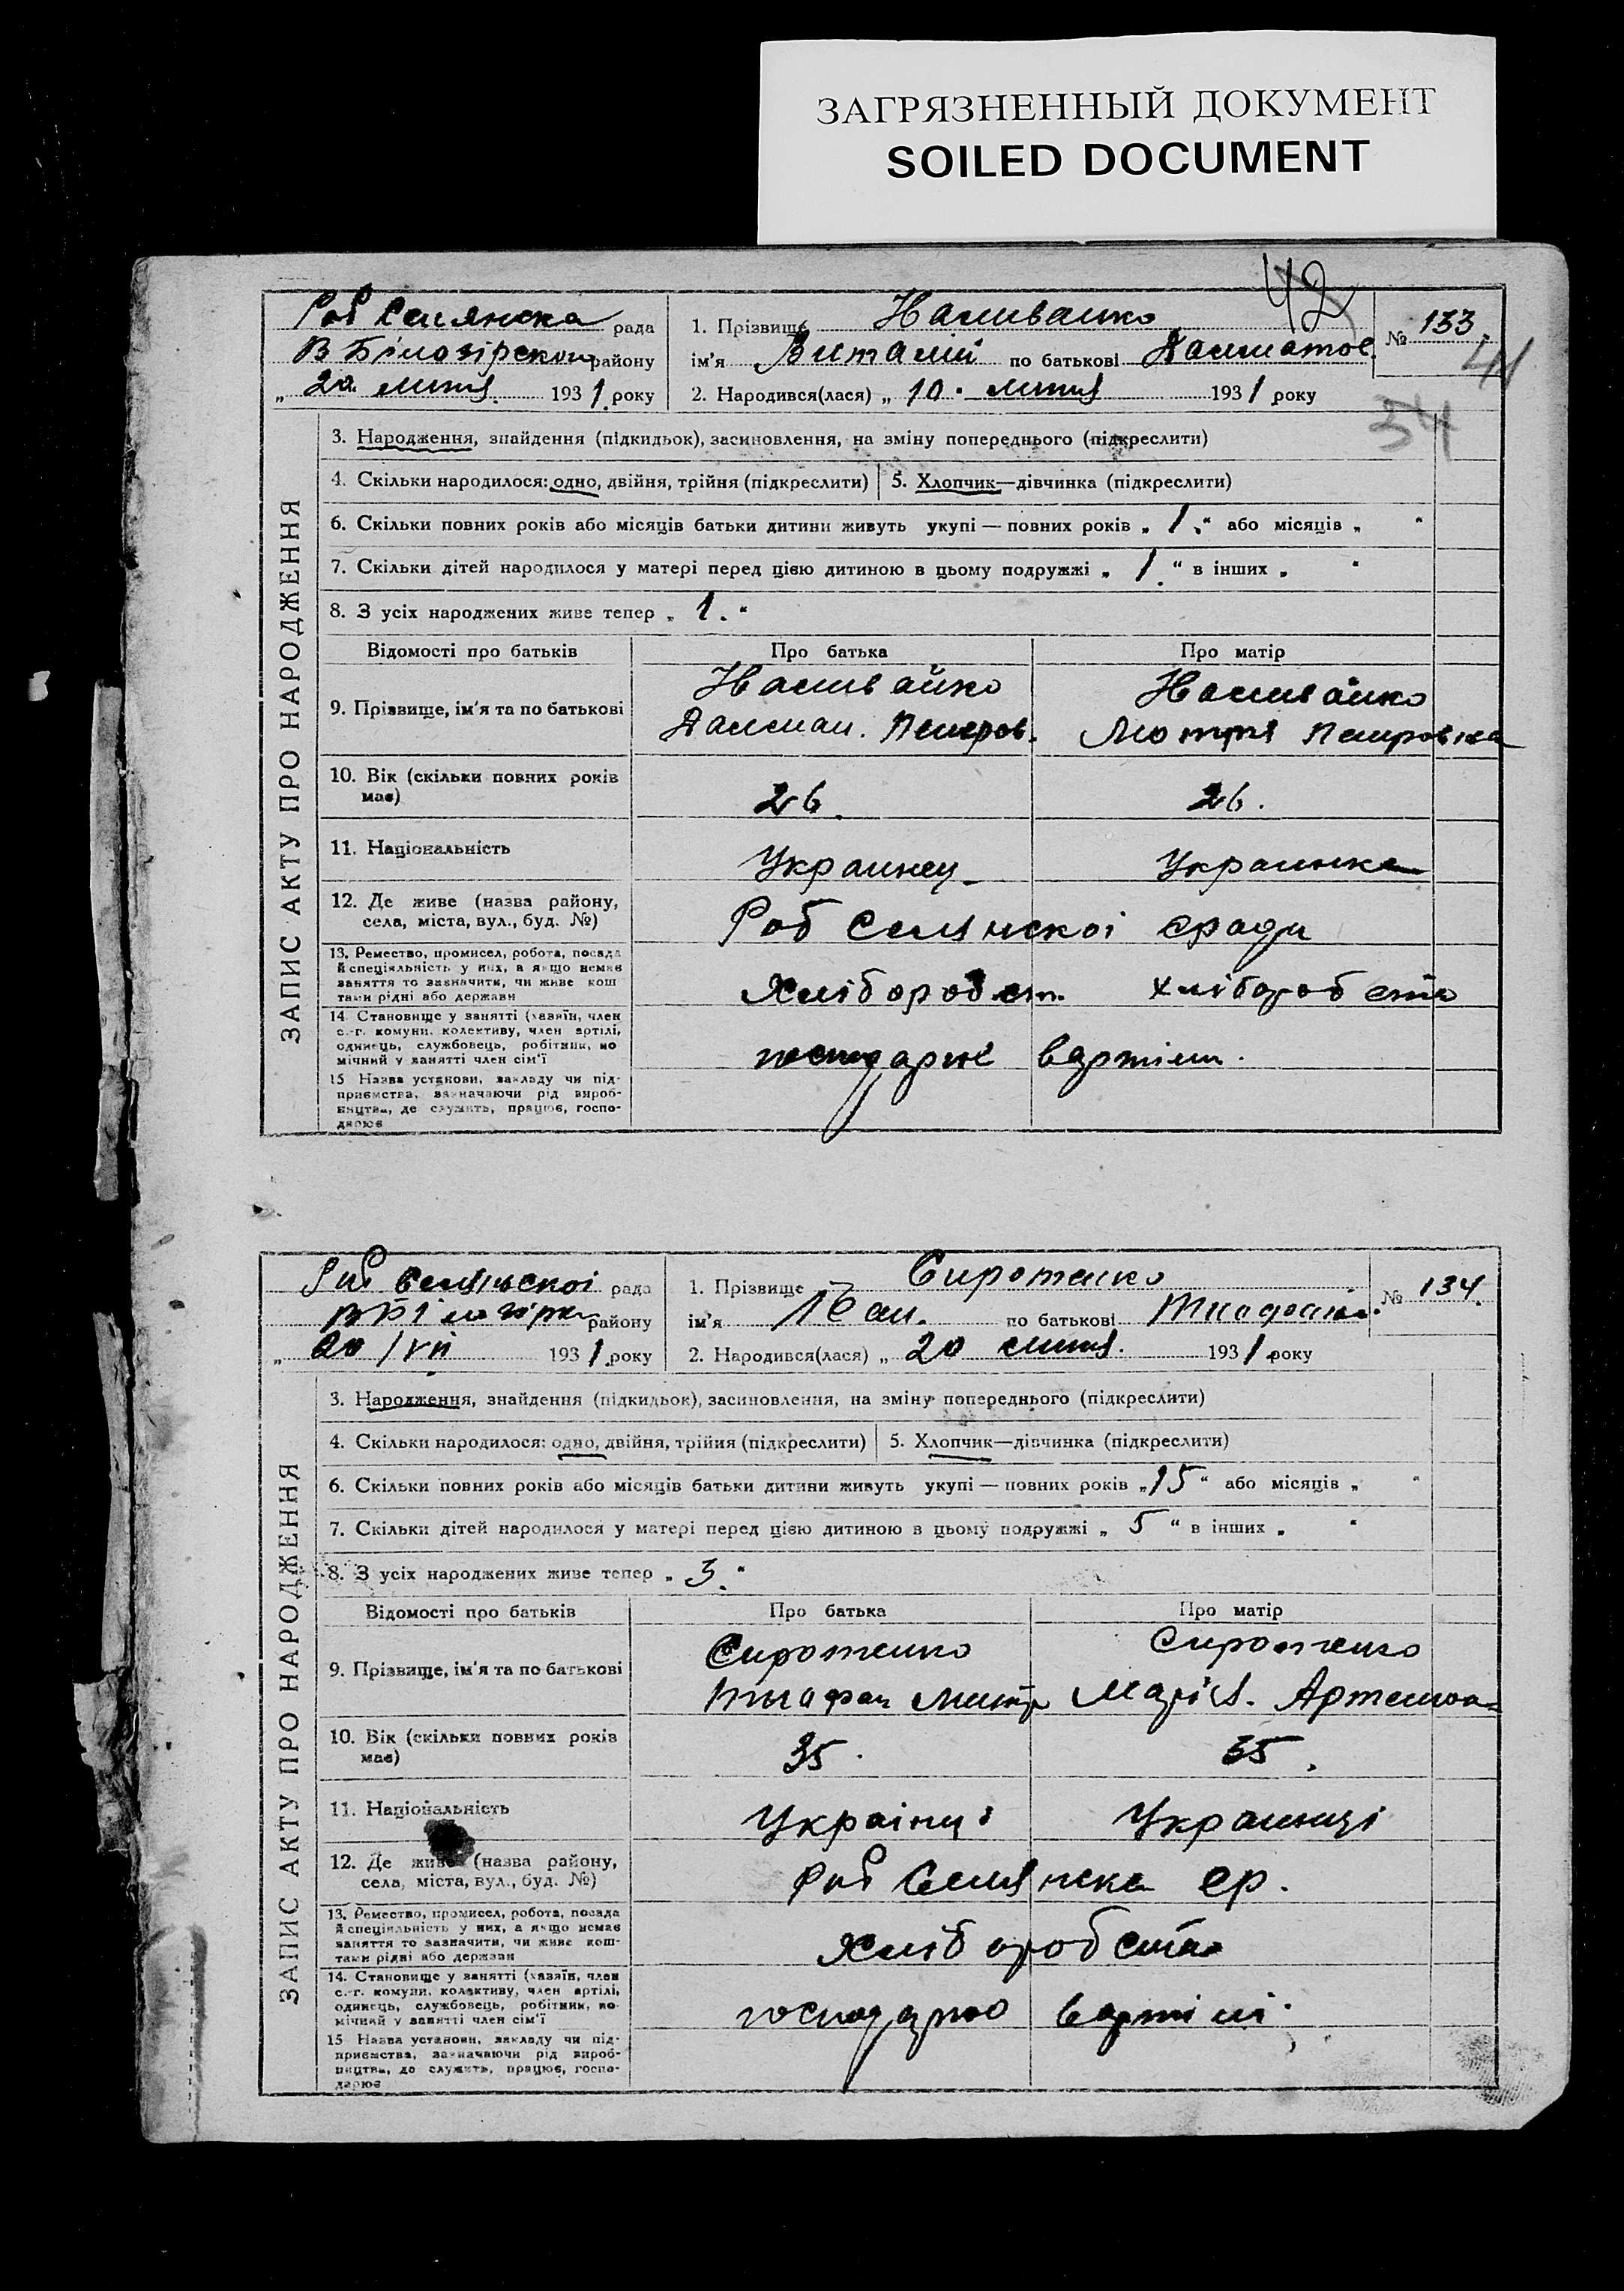 ЗАГРЯЗНЕННЫЙ ДОКУМЕНТ
SOILED DOCUMENT
42
Роб Селянска рада
В Білозірском району
„ 20 липня 1931 року
1. Прізвище Наливайко
ім'я Виталий по батькові Далматов.
2. Народився(лася) „ 10 . липня 1931 року
№ 133.
41
54
ЗАПИС АКТУ ПРО НАРОДЖЕННЯ
3. Народження, знайдення (підкидьок), засиновлення, на зміну попереднього (підкреслити)
4. Скільки народилося: одно, двійня, трійня (підкреслити)
5. Хлопчик—дівчинка (підкреслити)
6. Скільки повних років або місяців батьки дитини живуть укупі — повних років „ 1. “ або місяців „ “
7. Скільки дітей народилося у матері перед цією дитиною в цьому подружжі „ 1. “ в інших „ “
8. З усіх народжених живе тепер „ 1. “
Відомості про батьків Про батька Про матір
9. Прізвище, ім'я та по батькові
Наливайко
Петров.
Наливайко
Мотря Петровна
10. Вік (скільки повних років
має)
26. 26.
11. Національність Украинец Украинка
12. Де живе (назва району,
села, міста, вул., буд. №)
Роб Селянскоі сради
13. Ремество, промисел, робота, посада
й спеціяльність у них, а якщо немає
заняття то зазначити, чи живе кош
тами рідні або держави
Хліборобст. хліборобство
14. Становище у занятті (хазяїн, член
с.-г. комуни, колективу, член артілі,
одинець, службовець, робітник, по
мічний у занятті член сім'ї
вартіли.
15 Назва установи, закладу чи під-
приємства, зазначаючи рід вироб-
ництва, де служить, працює, госпо-
дарює
Роб Селянськоі рада
району
„ 20/VII 1931 року
1. Прізвище Сиротенко
ім'я Іван. по батькові
2. Народився(лася) „ 20 липня. 1931 року
№ 134.
ЗАПИС АКТУ ПРО НАРОДЖЕННЯ
3. Народження, знайдення (підкидьок), засиновлення, на зміну попереднього (підкреслити)
4. Скільки народилося: одно, двійня, трійня (підкреслити)
5. Хлопчик—дівчинка (підкреслити)
6. Скільки повних років або місяців батьки дитини живуть укупі — повних років „ 15 “ або місяців „ “
7. Скільки дітей народилося у матері перед цією дитиною в цьому подружжі „ 5 “ в інших „ “
8. З усіх народжених живе тепер „ 3. “
Відомості про батьків Про батька Про матір
9. Прізвище, ім'я та по батькові
Сиротенко
Сиротенко
Марія. Артемова
10. Вік (скільки повних років
має)
35. 35.
11. Національність Українці Украинці
12. Де живе (назва району,
села, міста, вул., буд. №)
Роб Селянска ср.
13. Ремество, промисел, робота, посада
й спеціяльність у них, а якщо немає
заняття то зазначити, чи живе кош-
тами рідні або держави
Хліборобство
14. Становище у занятті (хазяїн, член
с.-г. комуни, колективу, член артілі,
одинець, службовець, робітник, по-
мічний у занятті член сім'ї
господарю вартілі.
15 Назва установи, закладу чи під-
приємства, зазначаючи рід вироб-
ництва, де служить, працює, госпо-
дарює